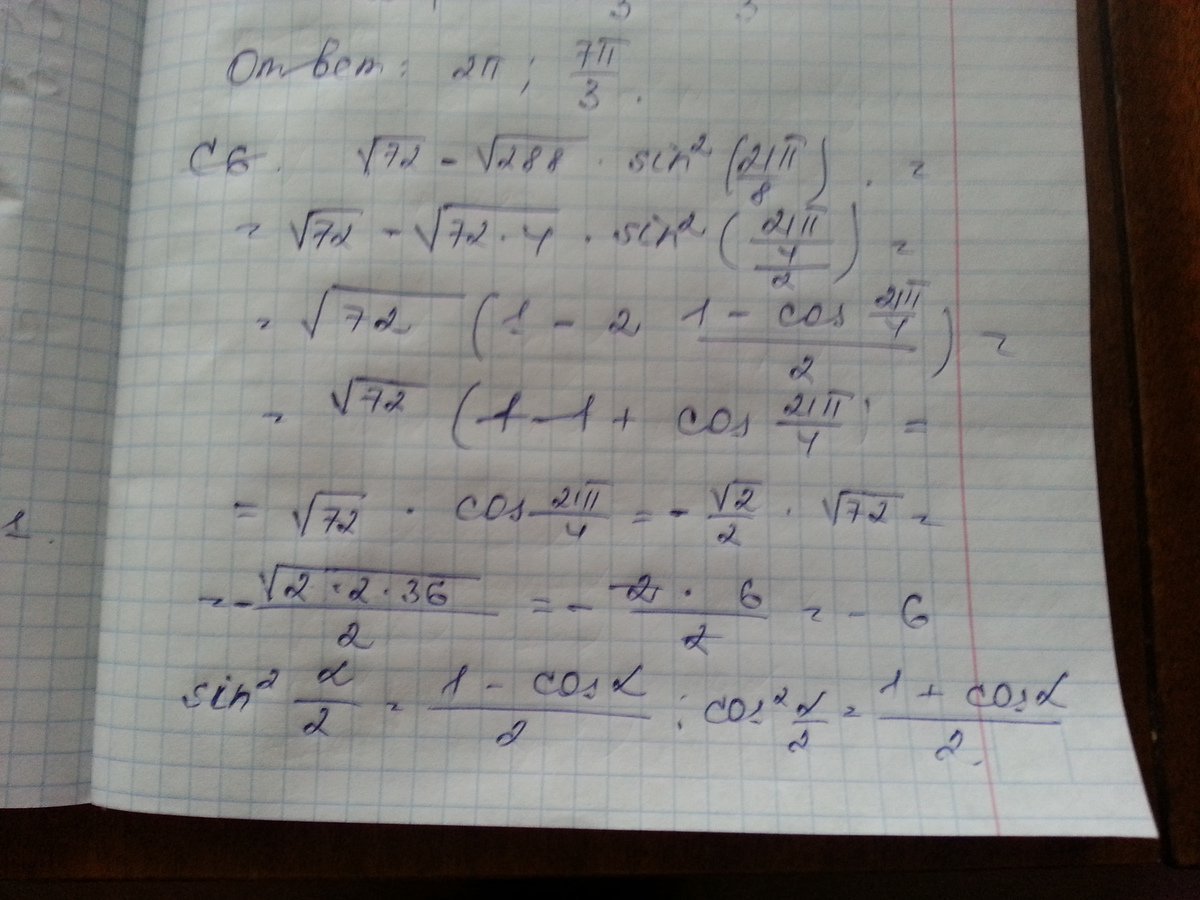 3 3
Ответ: 2π; 7π/3.
С6. √72 - √288 · sin² (21π/8). =
= √72 - √72·4 · sin² (21π/4/2) =
= √72 (1 - 2 1 - cos 21π/4 / 2) =
= √72 (1 - 1 + cos 21π/4) =
= √72 · cos 21π/4 = - √2/2 · √72 =
= - √2·2·36 / 2 = - 2 · 6 / 2 = - 6
1.
sin² α/2 = 1 - cos α / 2 ; cos² α/2 = 1 + cos α / 2.